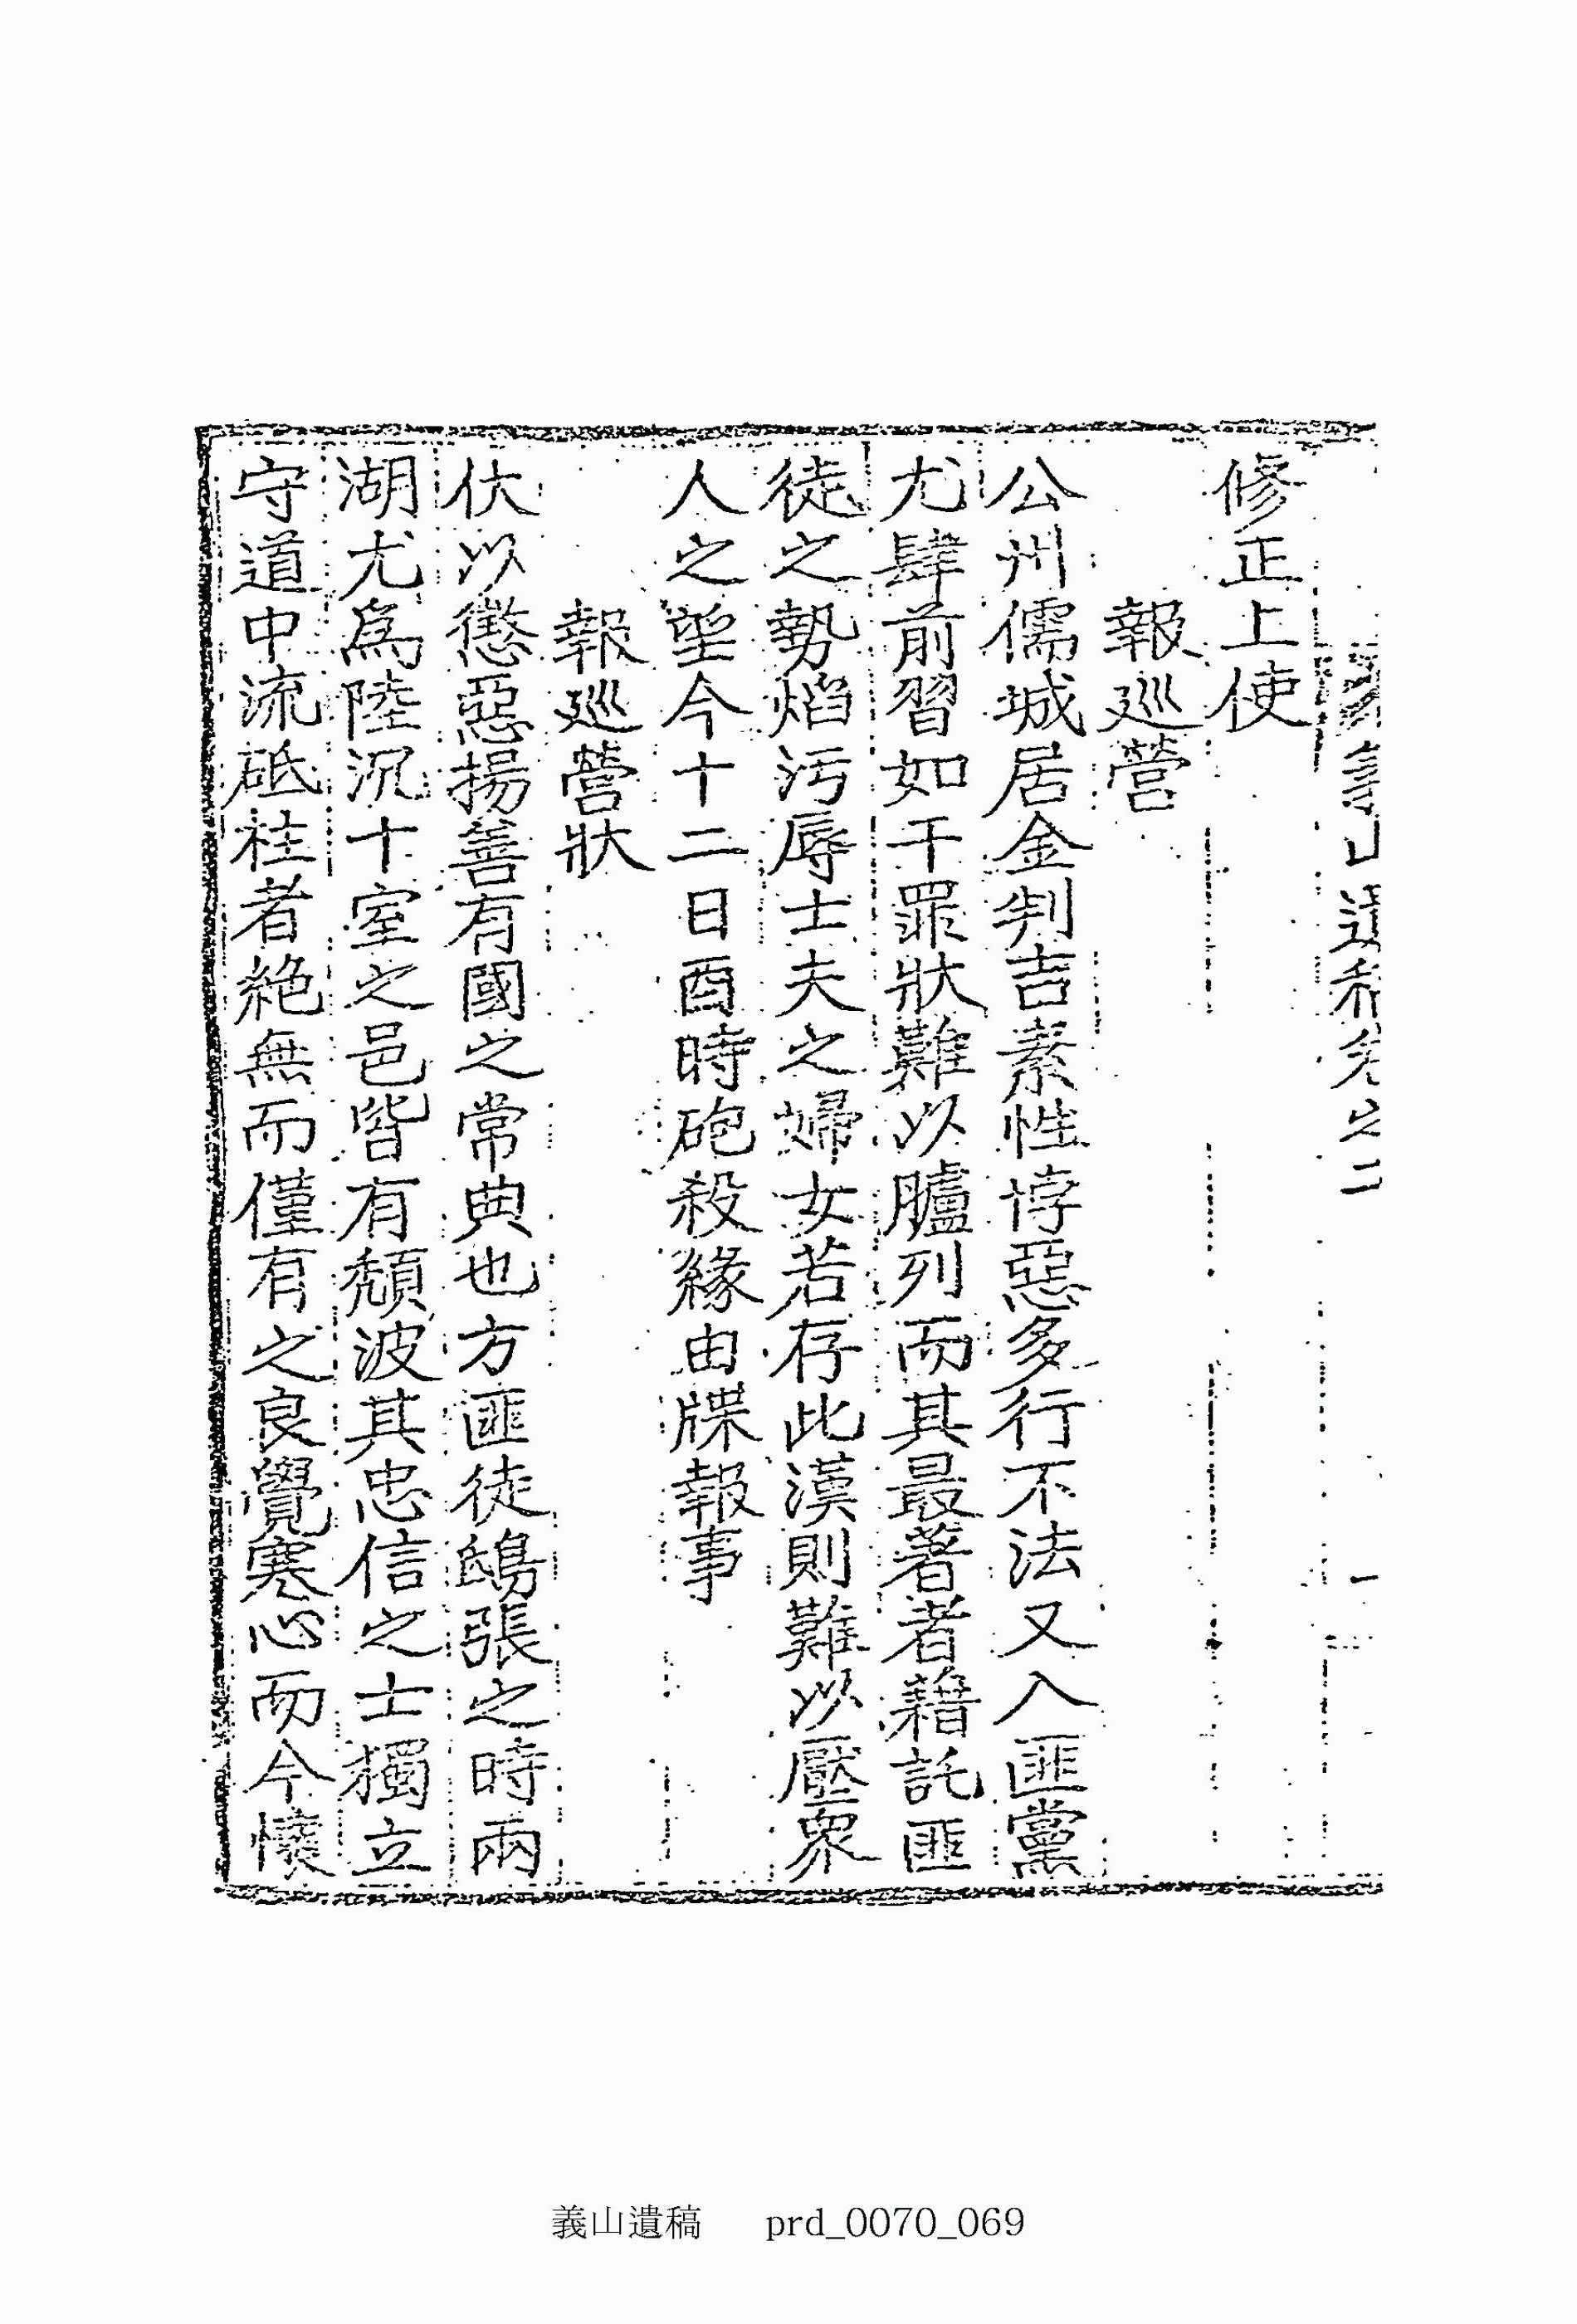 義山遺稿卷之二
修正上使
報巡營
公州儒城居金判吉素性悖惡多行不法又入匪黨
尤肆前習如干罪狀難以臚列而其最著者籍託匪
徒之勢焰污辱士夫之婦女若存此漢則難以壓衆
人之望今十二日酉時砲殺緣由牒報事
報巡營狀
伏以懲惡揚善有國之常典也方匪徒鴟張之時兩
湖尤爲陸沉十室之邑皆有頹波其忠信之士獨立
守道中流砥柱者絶無而僅有之良覺寒心而今懷
義山遺稿 prd_0070_069